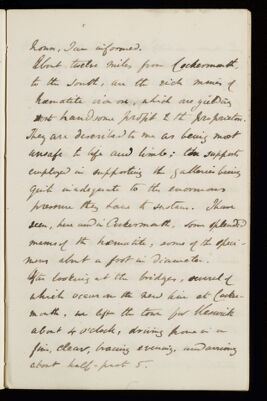 hours, I am informed.
About twelve miles from Cockermouth
to the South, are the rich mines of
hematite iron ore, which are yielding
handsome profit to the proprietors.
They are described to me as being most
unsafe to life and limb; the supports
employed in supporting the galleries being
quite inadequate to the enormous
pressure they have to sustain. I have
seen, here and in Cockermouth, some splendid
masses of the hematite, some of the speci-
mens about a foot in diameter.
After looking at the bridges, several of
which occur on the new line at Cocker-
mouth, we left the town for Keswick
about 4 o'clock, driving home in a
fine, clear, bracing evening, and arriving
about half-past 5.